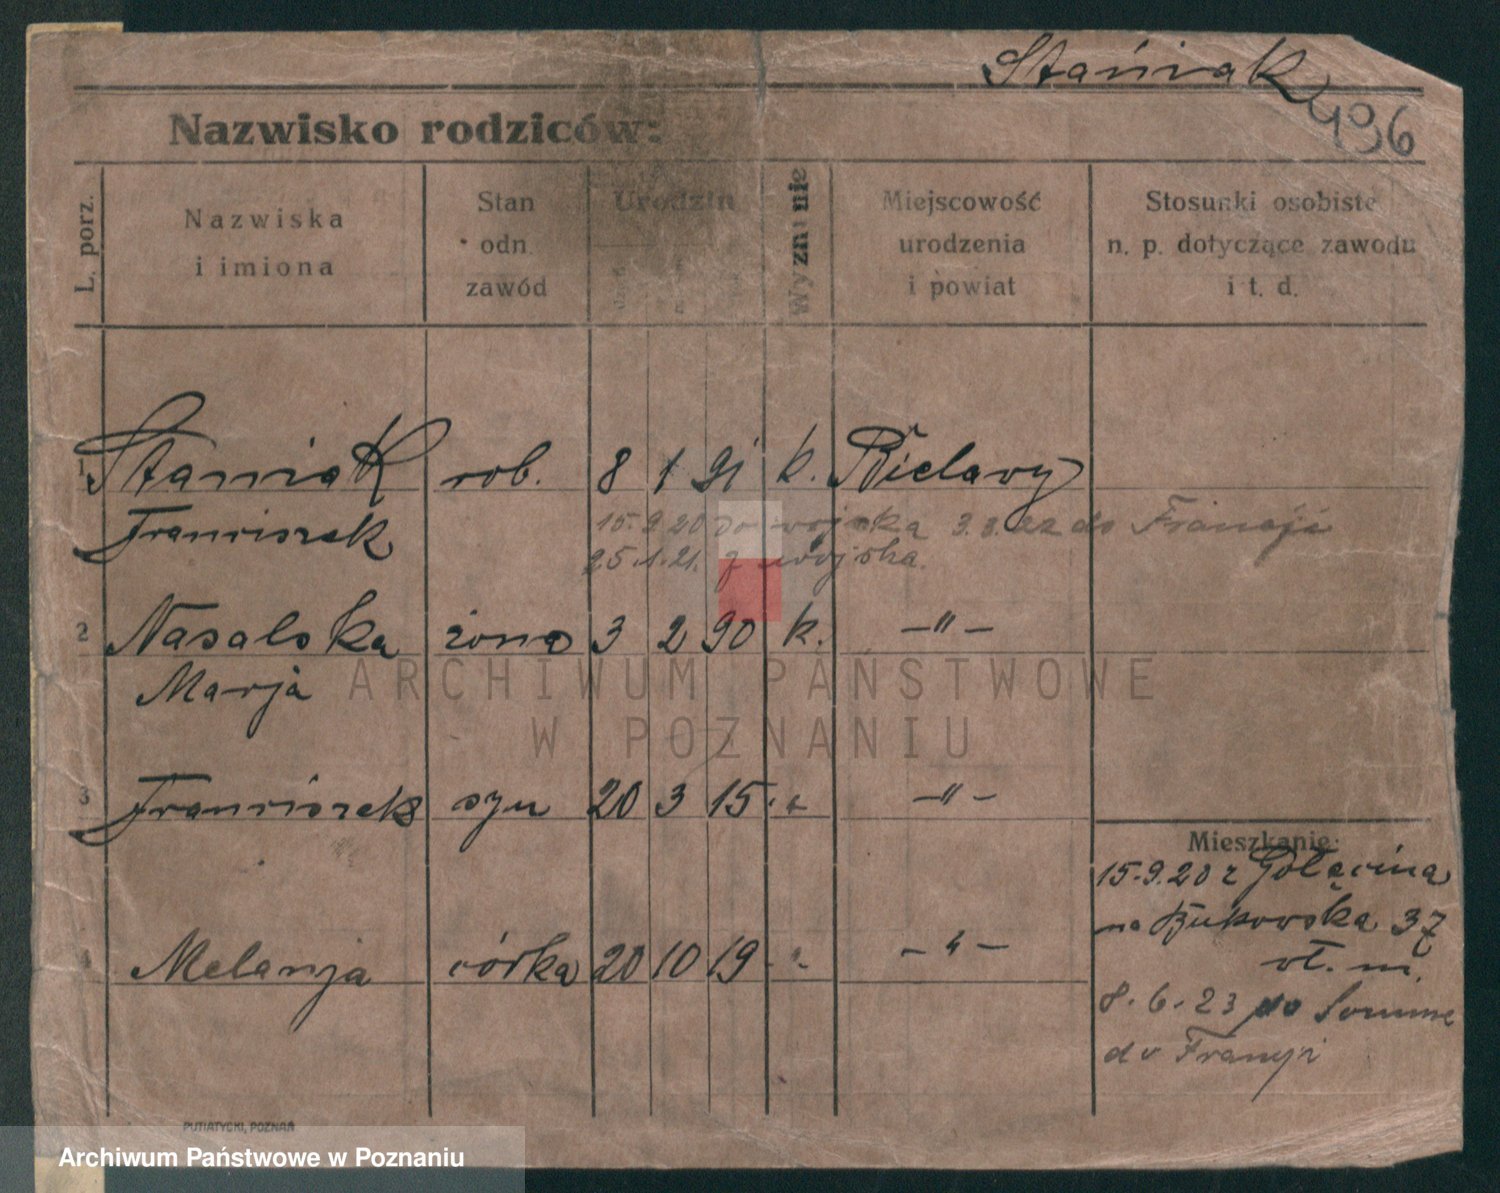 Stańiak
496
Nazwisko rodziców:
L. porz.
Nazwiska
i imiona
Stan
odn.
zawód
Urodzin
Wyznanie
Miejscowość
urodzenia
i powiat
Stosunki osobiste
n. p. dotyczące zawodu
i t. d.
1 Staniak rob. 8 1 91 k. Bielawy
Franciszek
15.9.20 do wojska 3.8.22 do Francji
25.1.21. z wojska.
2 Nasalska żona 3 2 90 k. -"-
Marja
ARCHIWUM PAŃSTWOWE
W POZNANIU
3 Franciszek syn 20 3 15 -"-
4 Melanja córka 20 10 19 -"-
Mieszkanie:
15.9.20 z Gołęcina
na Bukowska 37
wł. m.
8.6.23 do Somme
do Francji
PUTIATYCKI, POZNAŃ
Archiwum Państwowe w Poznaniu